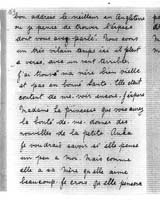 bon address le meilleur en Angleterre
ou je pense de trouver l'espèce
dont vous avez parlé. Nous avons
un très vilain temps ici il pleut
a verse, avec un vent terrible.
J'ai trouvé ma mère bien vieille
et pas en bonne santé. Elle était
contente de me voir encore. J'espère
Madame la princesse que vous aurez
la bonté de me donner des
nouvelles de la petite Anka
Je voudrais savoir si elle pense
un peu à moi. Mais comme
elle a sa mère qu'elle aime
beaucoup je crois qu'elle pensera